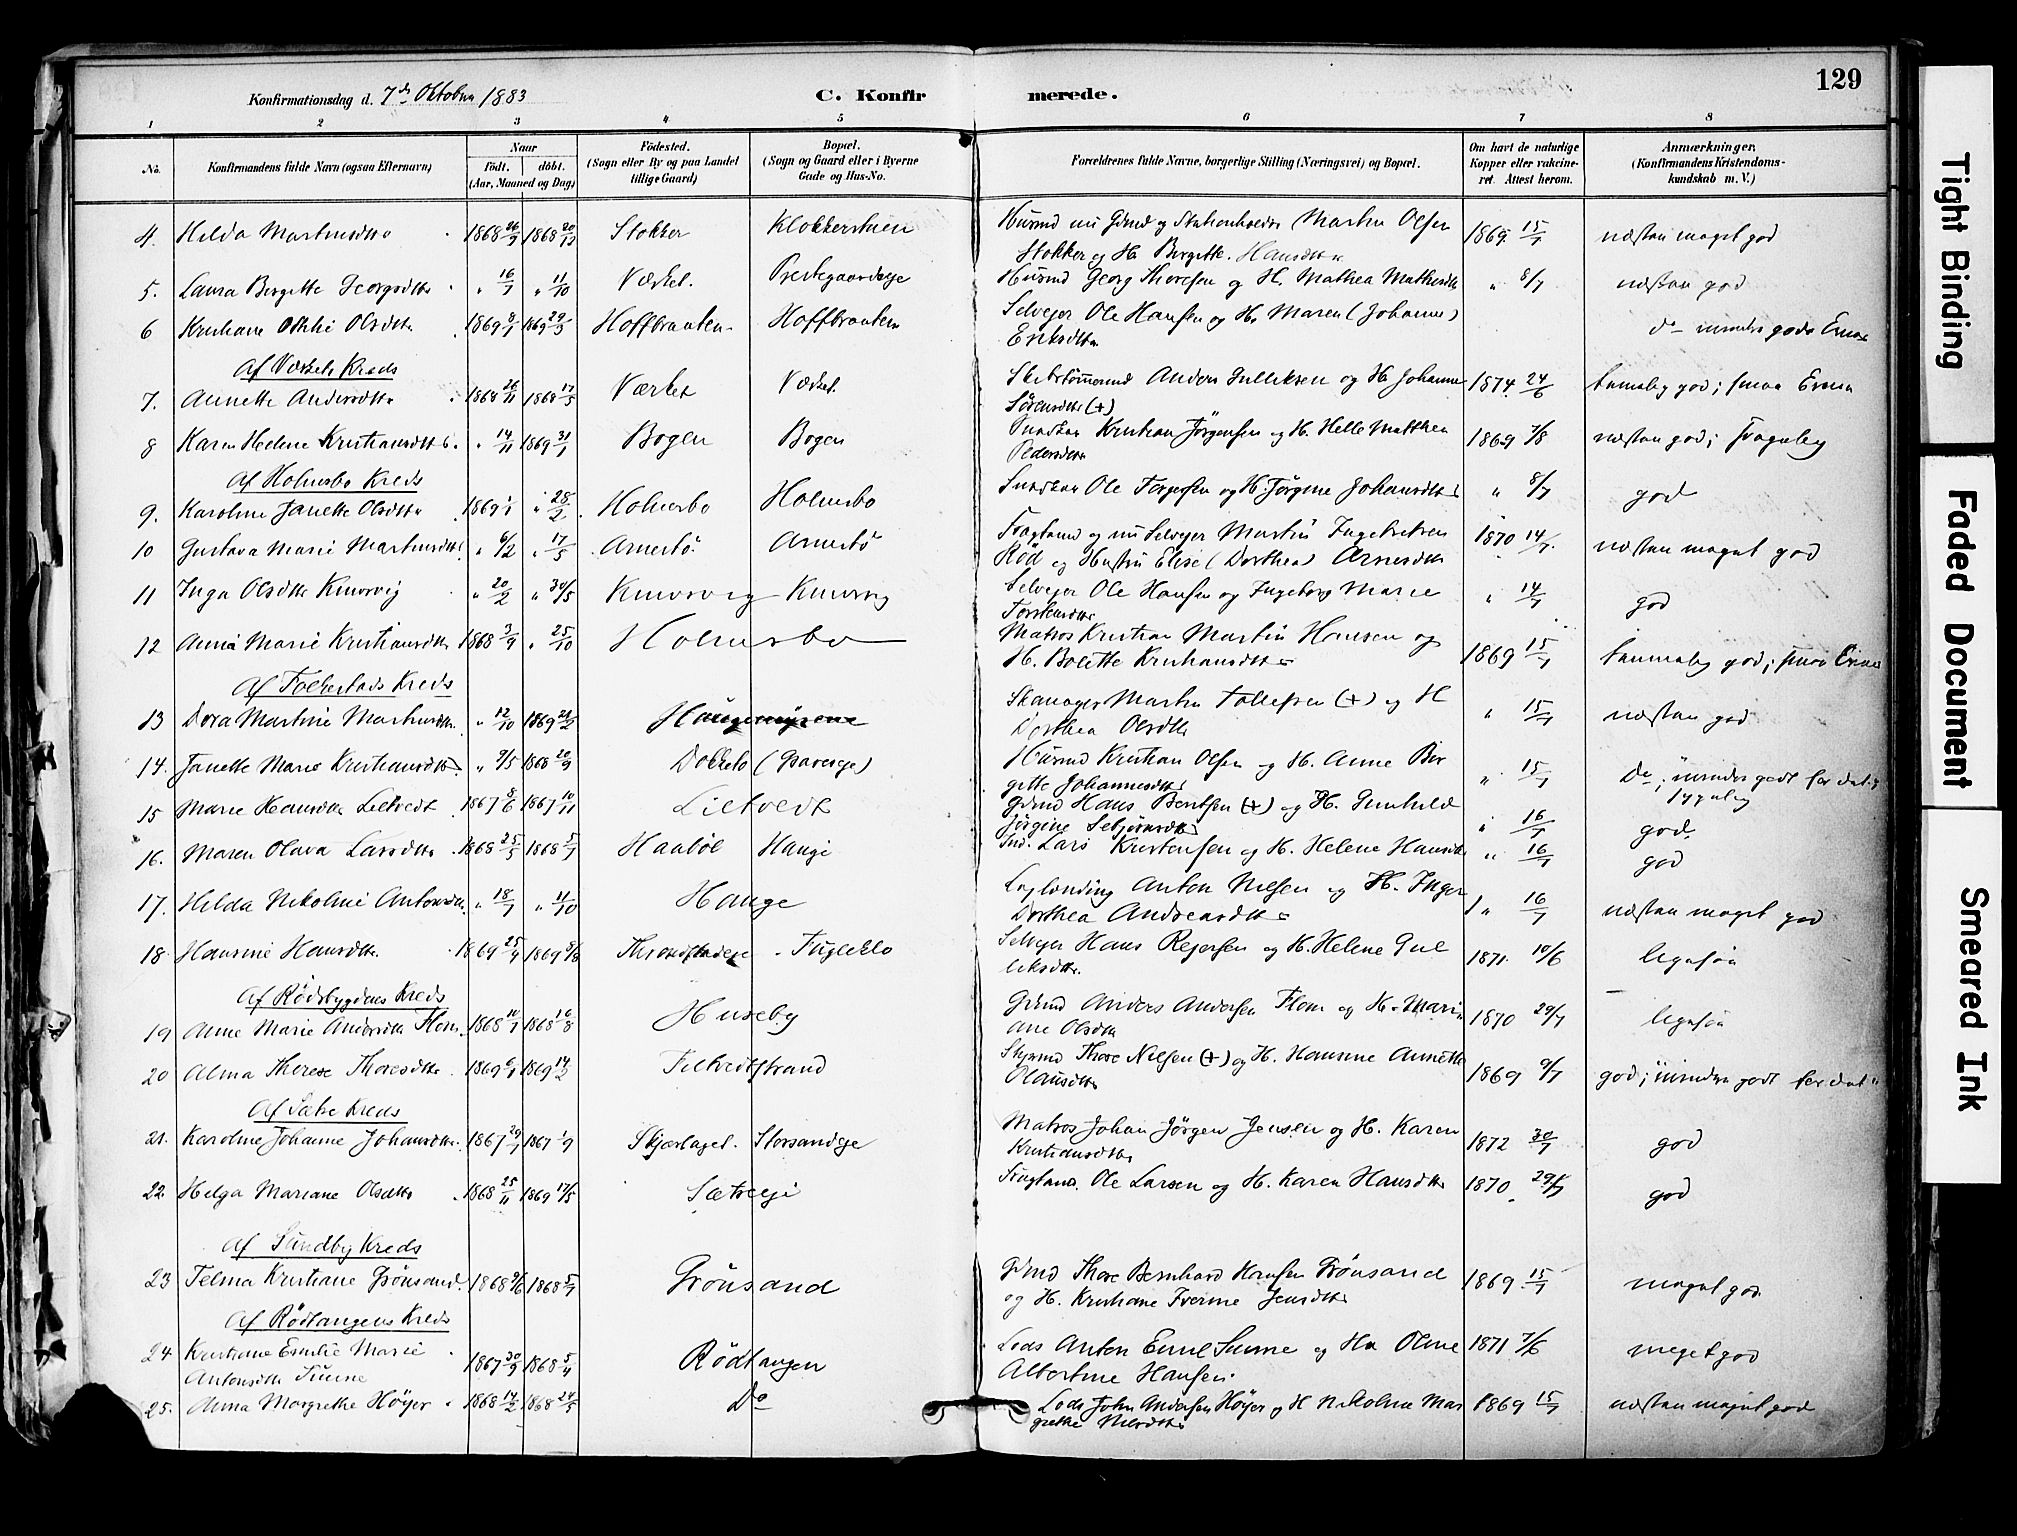 129
Konfirmationsdag d. 7de Oktober 1883
C. Konfirmerede.
1 2 3 4 5 6 7 8
No. Konfirmandens fulde Navn (ogsaa Efternavn) Naar født. døbt. (Aar, Maaned og Dag) Fødested. (Sogn eller By og paa Landet tillige Gaard) Bopæl. (Sogn og Gaard eller i Byerne Gade og Hus-No. Forældrenes fulde Navne, borgerlige Stilling (Næringsvei) og Bopæl. Om havt de naturlige Kopper eller vakcineret. Attest herom. Anmærkninger, (Konfirmandens Kristendomskundskab m. V.)
4. Hilda Martinsdtr 1868 26/9 1868 20/12 Stokker Klokkerstuen Husmd nu Gdmd og Stationholder Martin Olsen 1869 15/7 næsten meget god
Stokker og H. Bergitte Hansdtr
5. Laura Bergitte Georgsdtr " 16/7 " 11/10 Værket. Prestegaardseje Husmd Georg Thoresen og H. Mathea Mathisdtr " 8/7 næsten god
6 Kristiane Othilie Olsdtr 1869 8/1 1869 29/3 Hoffbrauten Hoffbrauten Selvejer Ole Hansen og H. Maren (Johanne)
Eriksdtr do mindre gode Evner
Af Værkets Kreds
7. Annette Andersdtr 1868 26/11 Værket Værket. Skibstømmermd Anders Gulliksen og H. Johanne 1874 24/6 temmelig god; smaa Evner
Sørensdtr (+)
8 Karen Helene Kristiansdtr " 14/11 1869 31/1 Bogen Bogen Kristian Jørgensen og H. Helle Matthea 1869 7/8 næsten god;
Pedersdtr
Af Holmsbo Kreds
9. Karoline Janette Olsdtr 1869 " 28/2 Holmsbo Holmsbo Ole Torgersen og H. Jørgine Johansdtr " 8/7 god
10 Gustava Marie Martinsdtr " 6/2 " 17/5 Arnestø Arnestø nu Selvejer Martin Ingebretsen 1870 14/7 næsten meget god
Rød og Hustru Elise (Dorthea) Arnesdtr
11 Inga Olsdtr Knivsvig " 20/2 " 30/5 Knivsvig Knivsvig Selvejer Ole Hansen og Ingeborg Marie " 14/7 god
Torstensdtr
12 Anna Marie Kristiansdtr 1868 3/9 " 25/10 Holmsbo Matros Kristian Martin Hansen og
H. Bolette Kristiansdtr 1869 15/7 temmelig god; smaa Evner
Af Tofterstads Kreds
13 Dora Martine Martinsdtr " 12/10 1869 Haugemyrene Martin Tollefsen (+) og H " 15/7 næsten god
Dorthea Olsdtr
14. Janette Marie Kristiansdtr " 9/5 1868 20/9 Dokkeb (Graveseje) Husmd Kristian Olsen og H. Anne Ber " 15/7 Do; mindre godt for det;
gitte Johannesdtr sygelig
15 Marie Hansdtr Lietvedt 1867 8/6 1867 10/11 Lietvedt Gdmd Hans Berntsen (+) og H. Gunhild " 16/7 god
Jørgine
16. Maren Olava Larsdtr 1868 25/5 1868 5/7 Haabøl Haugi Lars Kristensen og H. Helene Hansdtr " 16/7 god
17. Hilda Nikoline Antonsdtr " 18/7 " 11/10 Hauge Anton Nilsen og H. Inger " 16/7 næsten meget god
Dorthea Andreasdtr
18. Hansine Hansdtr. 1869 25/4 1869 8/8 Fugleklo Selvejer Hans Rejersen og H. Helene Gul 1871 10/6 ligesaa
liksdtr
Af Rødsbygdens Kreds
19 Anne Marie Andersdtr Flom 1868 11/7 1868 16/8 Huseby Gdmd Anders Andersen Flom og H. Mari 1870 29/7 ligesaa
ane Olsdtr
20 Alma Therese Thoresdtr 1869 6/1 1869 14/2 Filtvedtstrand Thore Nilsen (+) og H. Hansine Annette 1869 9/7 god; mindre godt for det
Olausdtr
Af Sætre Kreds
21. Karoline Johanne Johansdtr 1867 29/7 1867 1/9 Skjærlaget. Storsandeje Matros Johan Jørgen Jensen og H. Karen 1872 30/7 god
Kristiansdtr
22. Helga Mariane Olsdtr 1868 25/11 1869 17/5 Sætreeje Ole Larsen og H. Karen Hansdtr 1870 god
Af Sundby Kreds
23 Telma Kristiane Grönsand 1868 9/6 1868 5/7 Grönsand Gdmd Thore Bernhard Hansen Grönsand 1869 15/7 meget god
og H. Kristiane Iverine Jensdtr
Af Rødtangens Kreds
24 Kristiane Emilie Marie 1867 30/9 1868 5/4 Rødtangen Lods Anton Emil og H. Oline 1871 7/6 meget god
Antonsdtr Albertine Hansen.
25. Anna Margrethe Höyer 1868 14/2 1868 24/5 Do Lods John Andersen Höyer og H Nikoline Mar 1869 15/7 næsten meget god
grethe Nilsdtr
Tight Binding
Faded Document
Smeared Ink